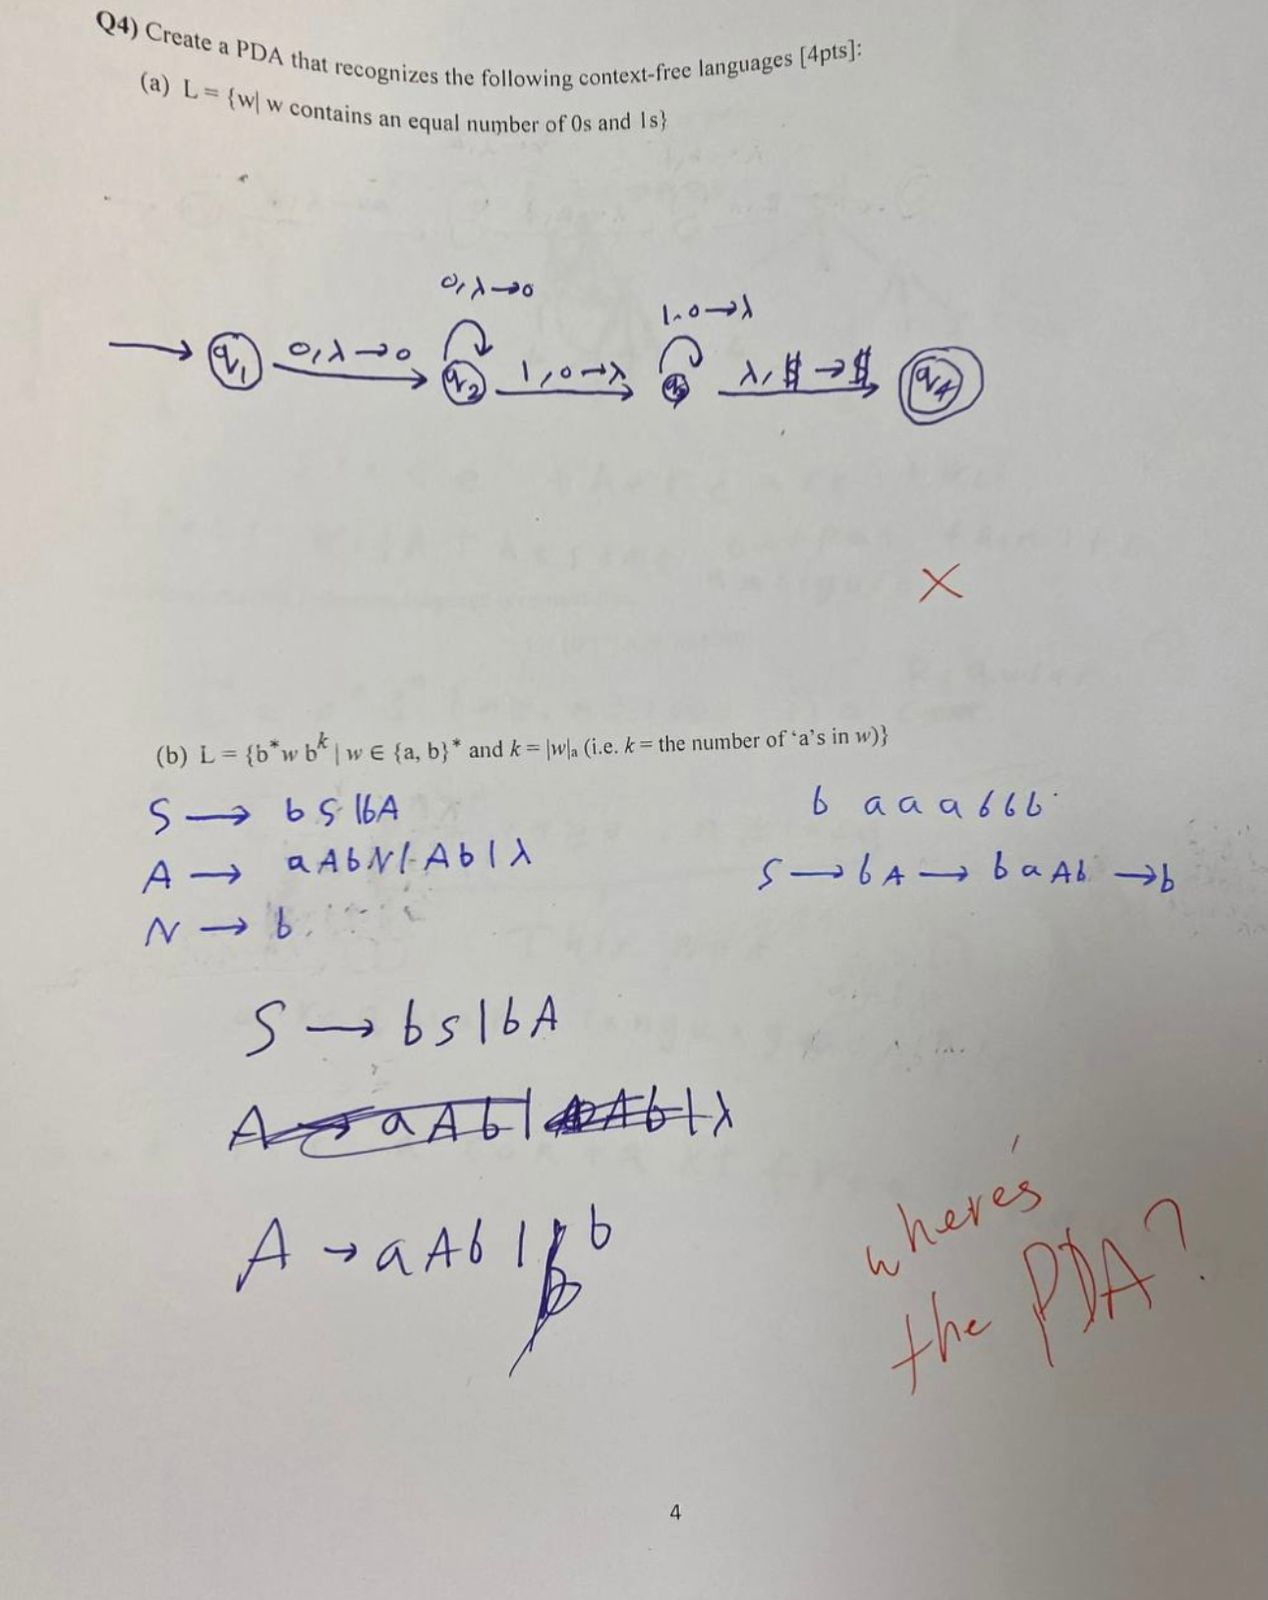 Q4) Create a PDA that recognizes the following context-free languages [4pts]:
(a) L = {w| w contains an equal number of 0s and 1s}
0, λ → 0
1, 0 → λ
q1 0, λ → 0 q2 1, 0 → λ λ, $ → $ q4
X
(b) L = {b*w bᵏ | w ∈ {a, b}* and k = |w|ₐ (i.e. k = the number of 'a's in w)}
S → bS|bA
b aaabbb
A → aAbN|Ab|λ
S → bA → baAb → b
N → b
S → bS|bA
A → aAb|
Ab|λ
A → aAb| b
where's
the PDA?
4